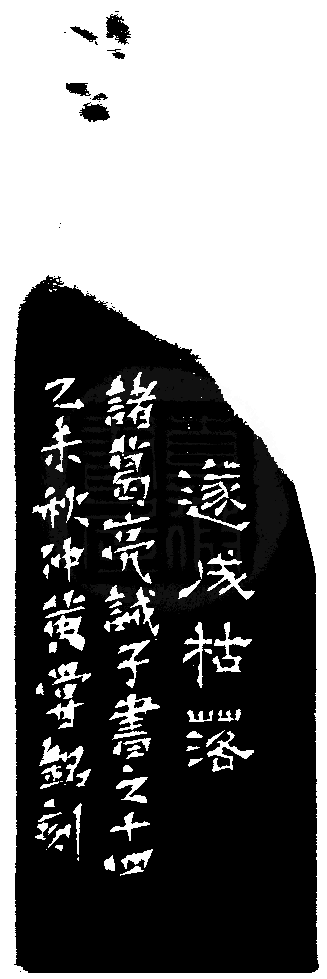 遂成枯落
諸葛亮誡子書之十四
乙未秋仲黄嘗銘刻